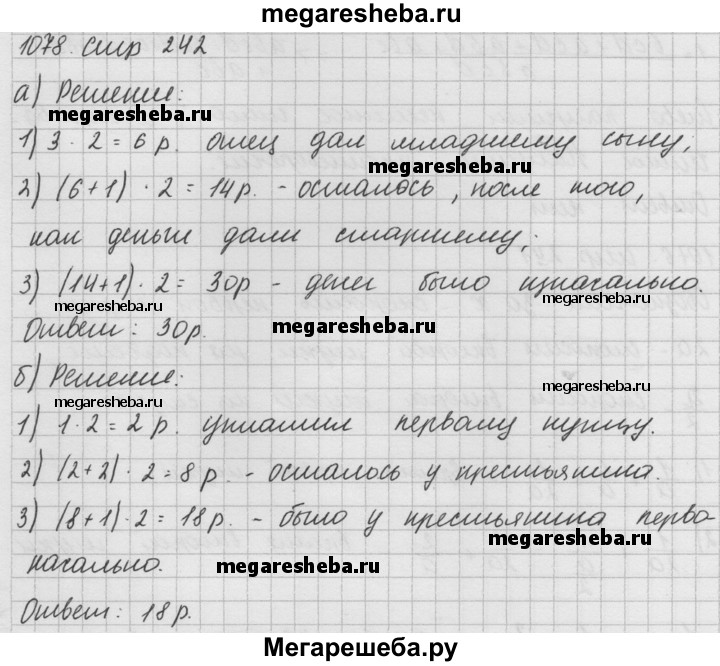 megaresheba.ru
1078. стр 242
а) Решение:
megaresheba.ru
1) 3 · 2 = 6 р. отец дал младшему сыну;
megaresheba.ru
2) (6+1) · 2 = 14 р. - осталось, после того,
как деньги дали старшему;
3) (14+1) · 2 = 30 р - денег было изначально.
megaresheba.ru megaresheba.ru
Ответ: 30 р.
megaresheba.ru
б) Решение:
megaresheba.ru megaresheba.ru
1) 1 · 2 = 2 р. уплатил первому купцу.
2) (2+2) · 2 = 8 р. - осталось у крестьянина.
3) (8+1) · 2 = 18 р. - было у крестьянина перво
megaresheba.ru
начально.
megaresheba.ru
Ответ: 18 р.
Мегарешеба.ру